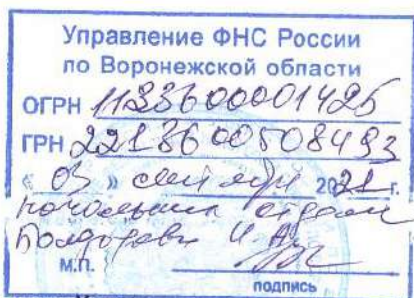 Управление ФНС России
по Воронежской области
ОГРН 1133600001425
ГРН 2213600508493
« 03 » сентября 2021 г.
начальник отдела
М.П.
подпись